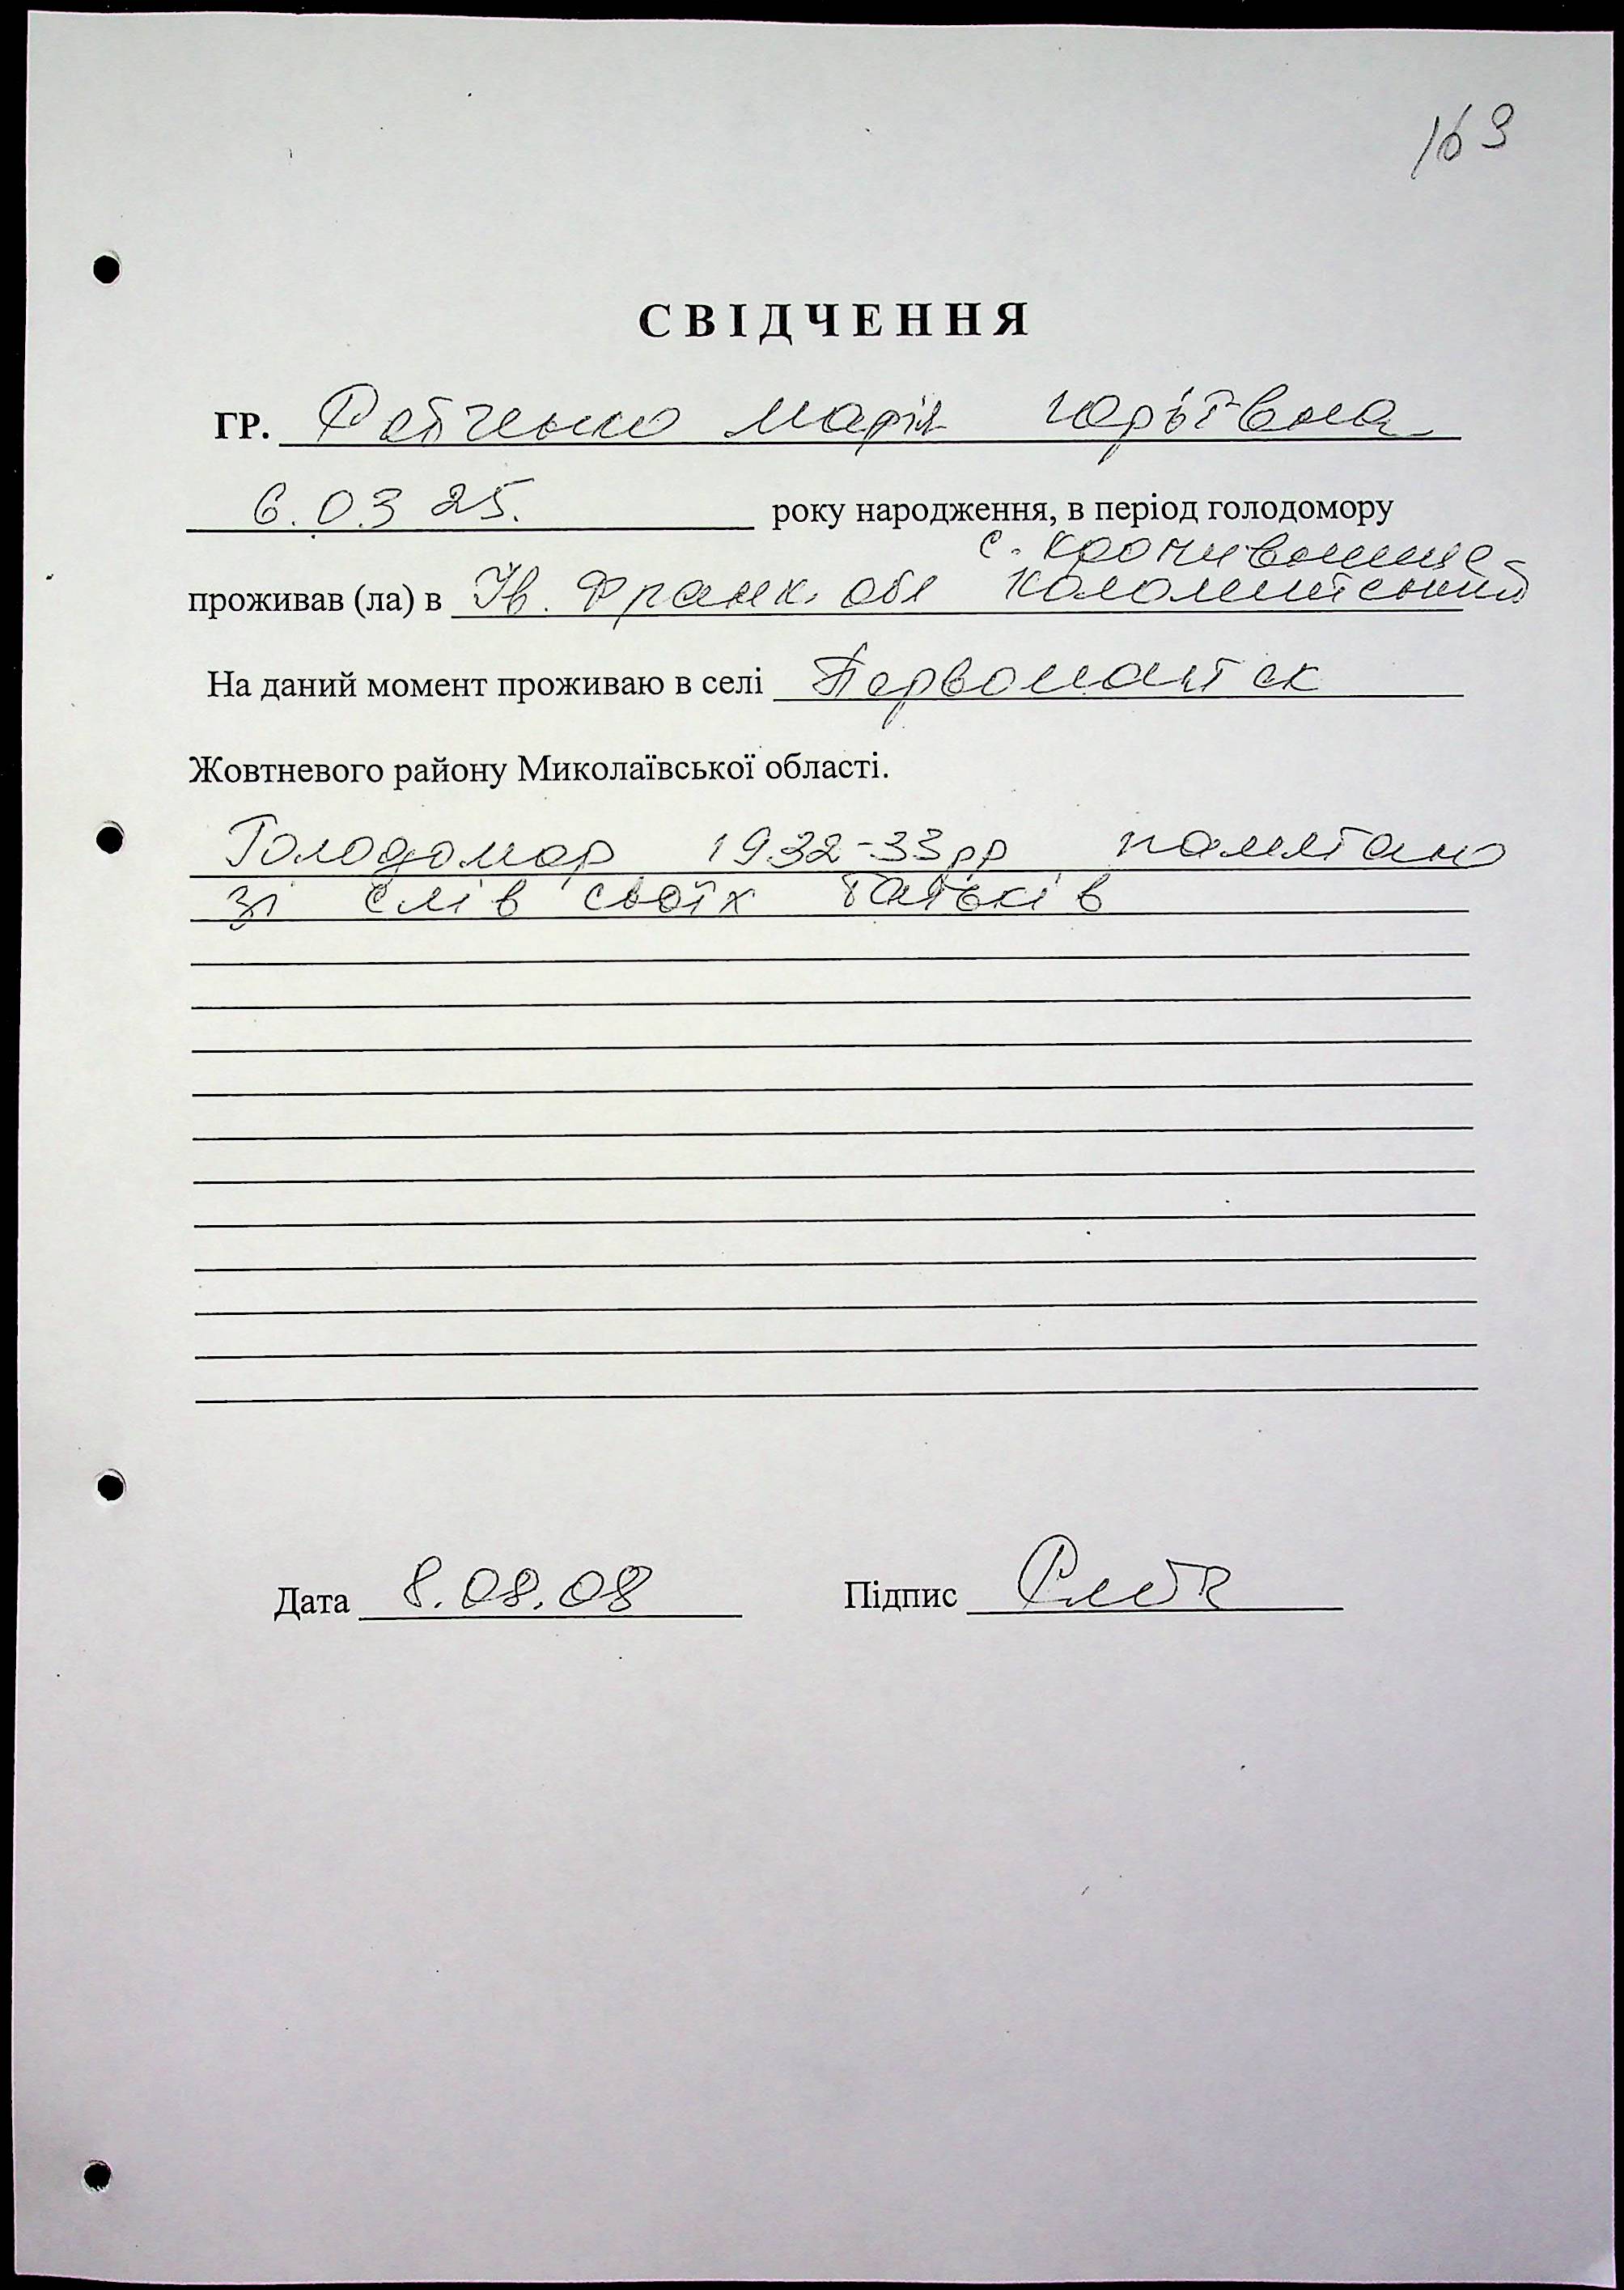 169
СВІДЧЕННЯ
ГР. Рябченко Марія Юріївна
6.03 25. року народження, в період голодомору
с. Кропивище
проживав (ла) в Ів. Франк. обл Коломийський
На даний момент проживаю в селі Первомайск
Жовтневого району Миколаївської області.
Голодомор 1932-33рр памятаю
зі слів своїх батьків
Дата 8.08.08 Підпис